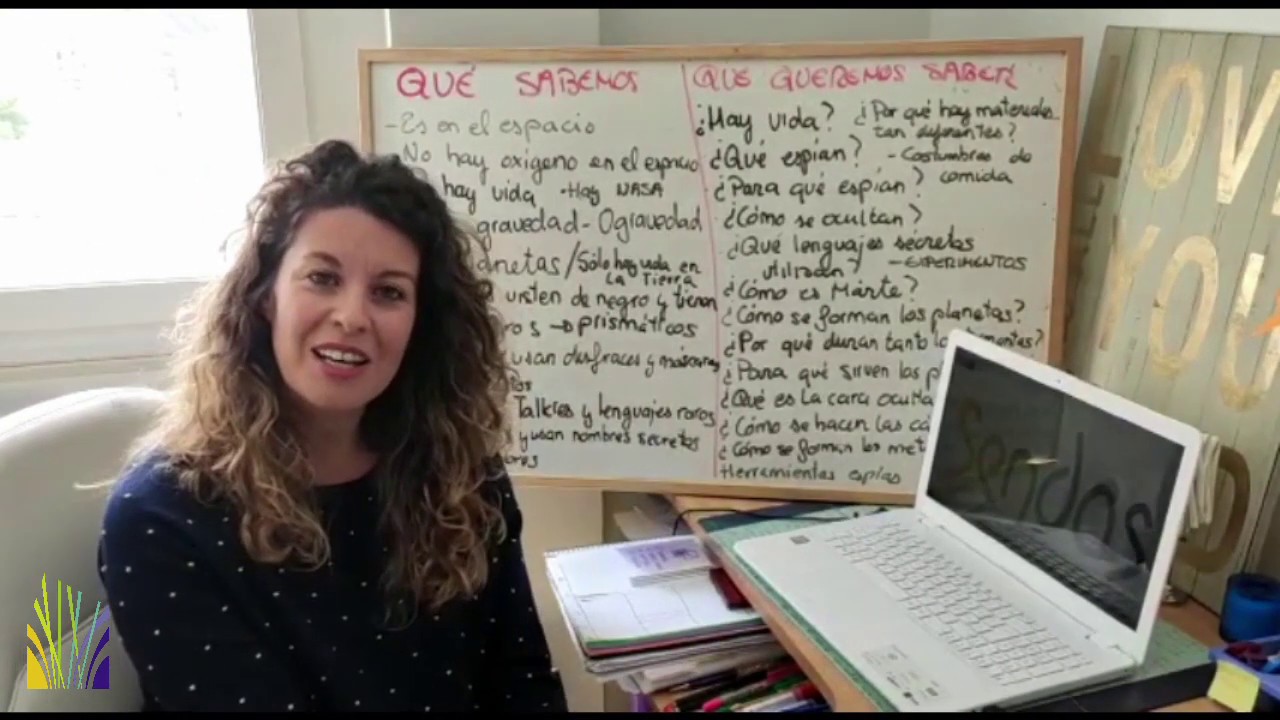 QUÉ SABEMOS
- Es en el espacio
No hay oxígeno en el espacio
hay vida - Hay NASA
gravedad - 0gravedad
/Sólo hay vida en
La Tierra
visten de negro y tienen
→ prismáticos
usan disfraces y máscaras
Talleres y lenguajes raros
y usan nombres secretos
QUE QUEREMOS SABER
¿Hay vida?
¿Por qué hay materiales
tan diferentes?
¿Qué espían?
- Costumbres de
comida
¿Para qué espían?
¿Cómo se ocultan?
¿Qué lenguajes secretos
utilizaen?
- EXPERIMENTOS
¿Cómo es Márte?
¿Cómo se forman los planetas?
¿Por qué duran tanto
¿Para qué sirven los
¿Qué es la cara oculta
¿Cómo se hacen las
¿Cómo se forman los
Herramientas espías
LOVE
YOU
Sendas